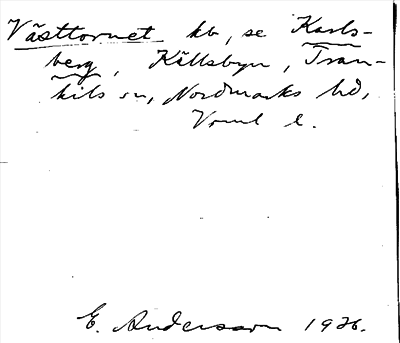 Västtornet kb, se Karls-
berg, Källsbyn, Tran-
kils sn, Nordmarks hd,
Vrml l.
E. Andersson 1926.